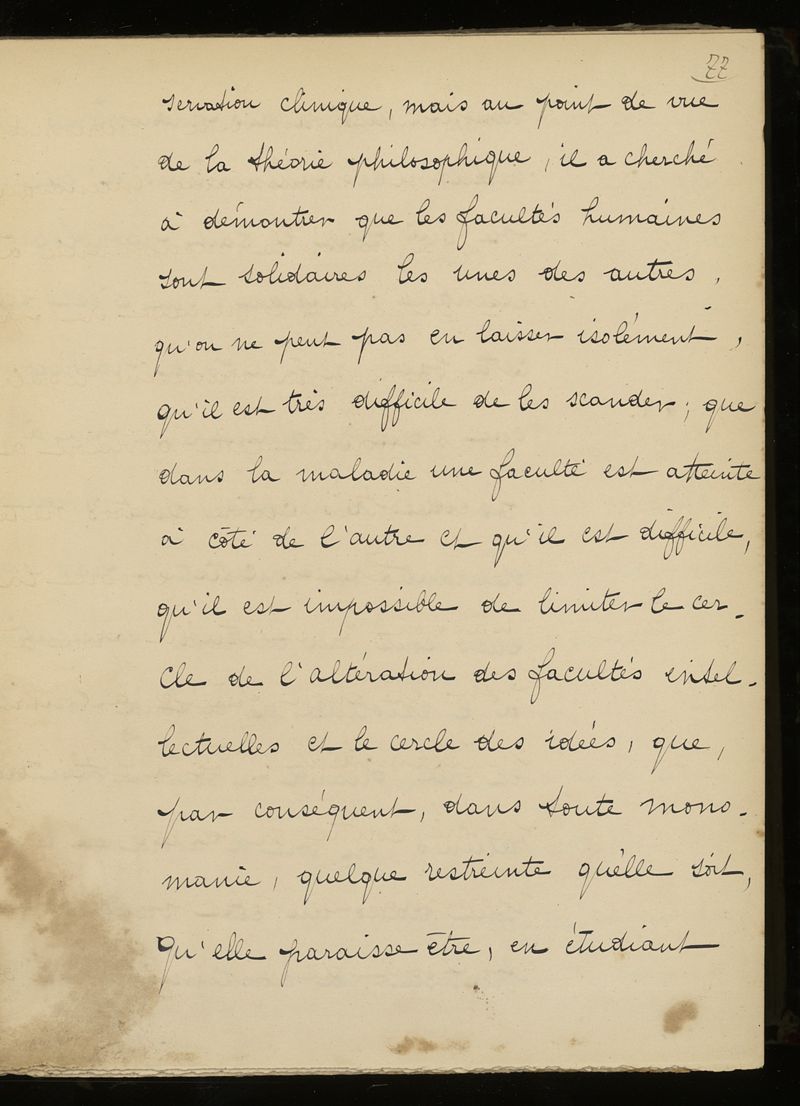 77
servation clinique, mais au point de vue
de la théorie philosophique, il a cherché
à démontrer que les facultés humaines
sont solidaires les unes des autres,
qu'on ne peut pas en laisser isolément,
qu'il est très difficile de les scander; que
dans la maladie une faculté est atteinte
à côté de l'autre et qu'il est difficile,
qu'il est impossible de limiter le cer-
cle de l'altération des facultés intel-
lectuelles et le cercle des idées, que,
par conséquent, dans toute mono-
manie, quelque restreinte qu'elle soit,
qu'elle paraisse être, en étudiant